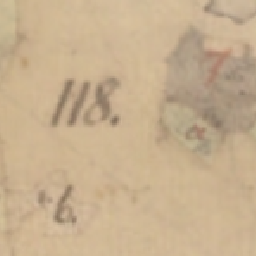 118.
7
a
6.